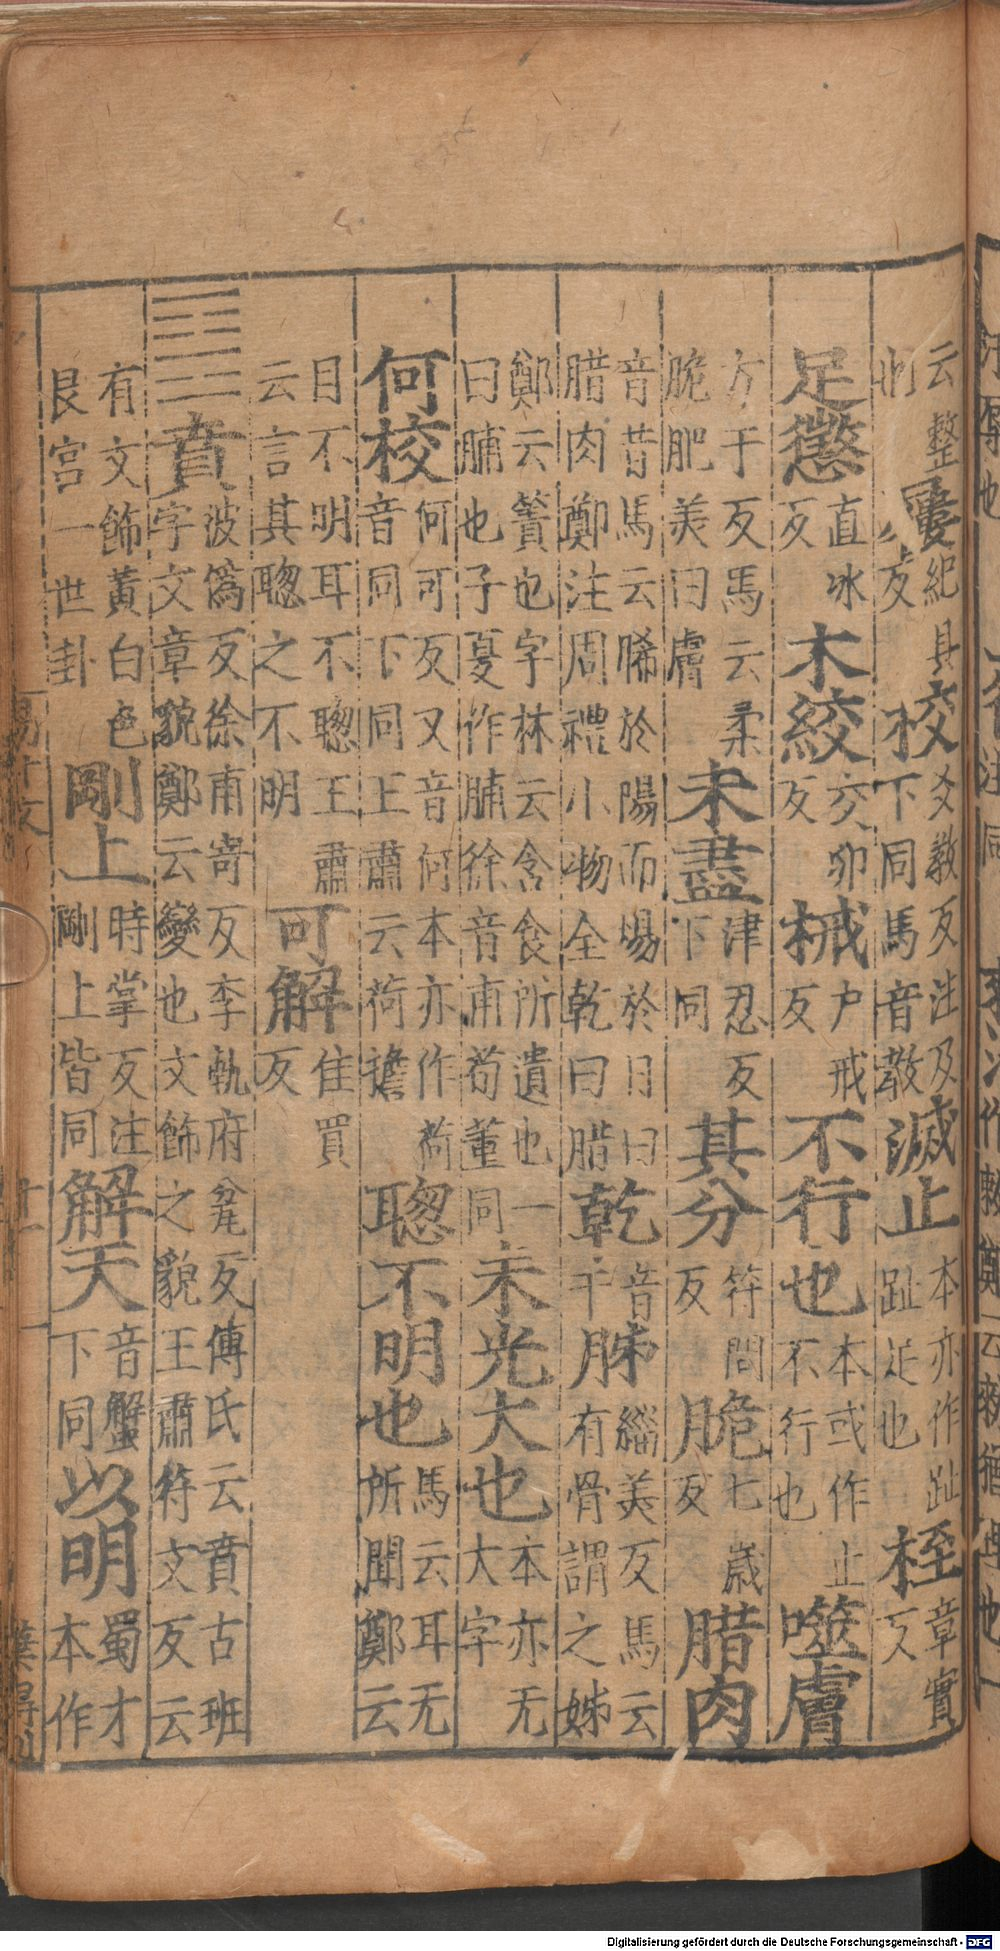 云整也屨紀具反校爻教反注及下同馬音教滅止本亦作趾趾足也桎章實反
足懲直冰反木絞交卯反械戶戒反不行也本或作止不行也噬膚
方于反馬云柔脆肥美曰膚未盡津忍反下同其分符問反脆七歲反腊肉
音昔馬云晞於陽而煬於日曰腊肉鄭注周禮小物全乾曰腊乾音干胏緇美反馬云有骨謂之胏
鄭云簀也字林云含食所遺也一曰脯也子夏作脯徐音甫荀董同未光大也本亦无大字
何校何可反又音何本亦作荷音同下同王肅云荷擔聦不明也馬云耳无所聞鄭云
目不明耳不聦王肅云言其聦之不明可解佳買反
䷕賁波僞反徐甫寄反李軌府瓫反傅氏云賁古班字文章貌鄭云變也文飾之貌王肅符文反云
有文飾黃白色艮宮一世卦剛上時掌反注剛上皆同解天音蟹下同以明蜀才本作
易音義
十一
Digitalisierung gefördert durch die Deutsche Forschungsgemeinschaft - DFG